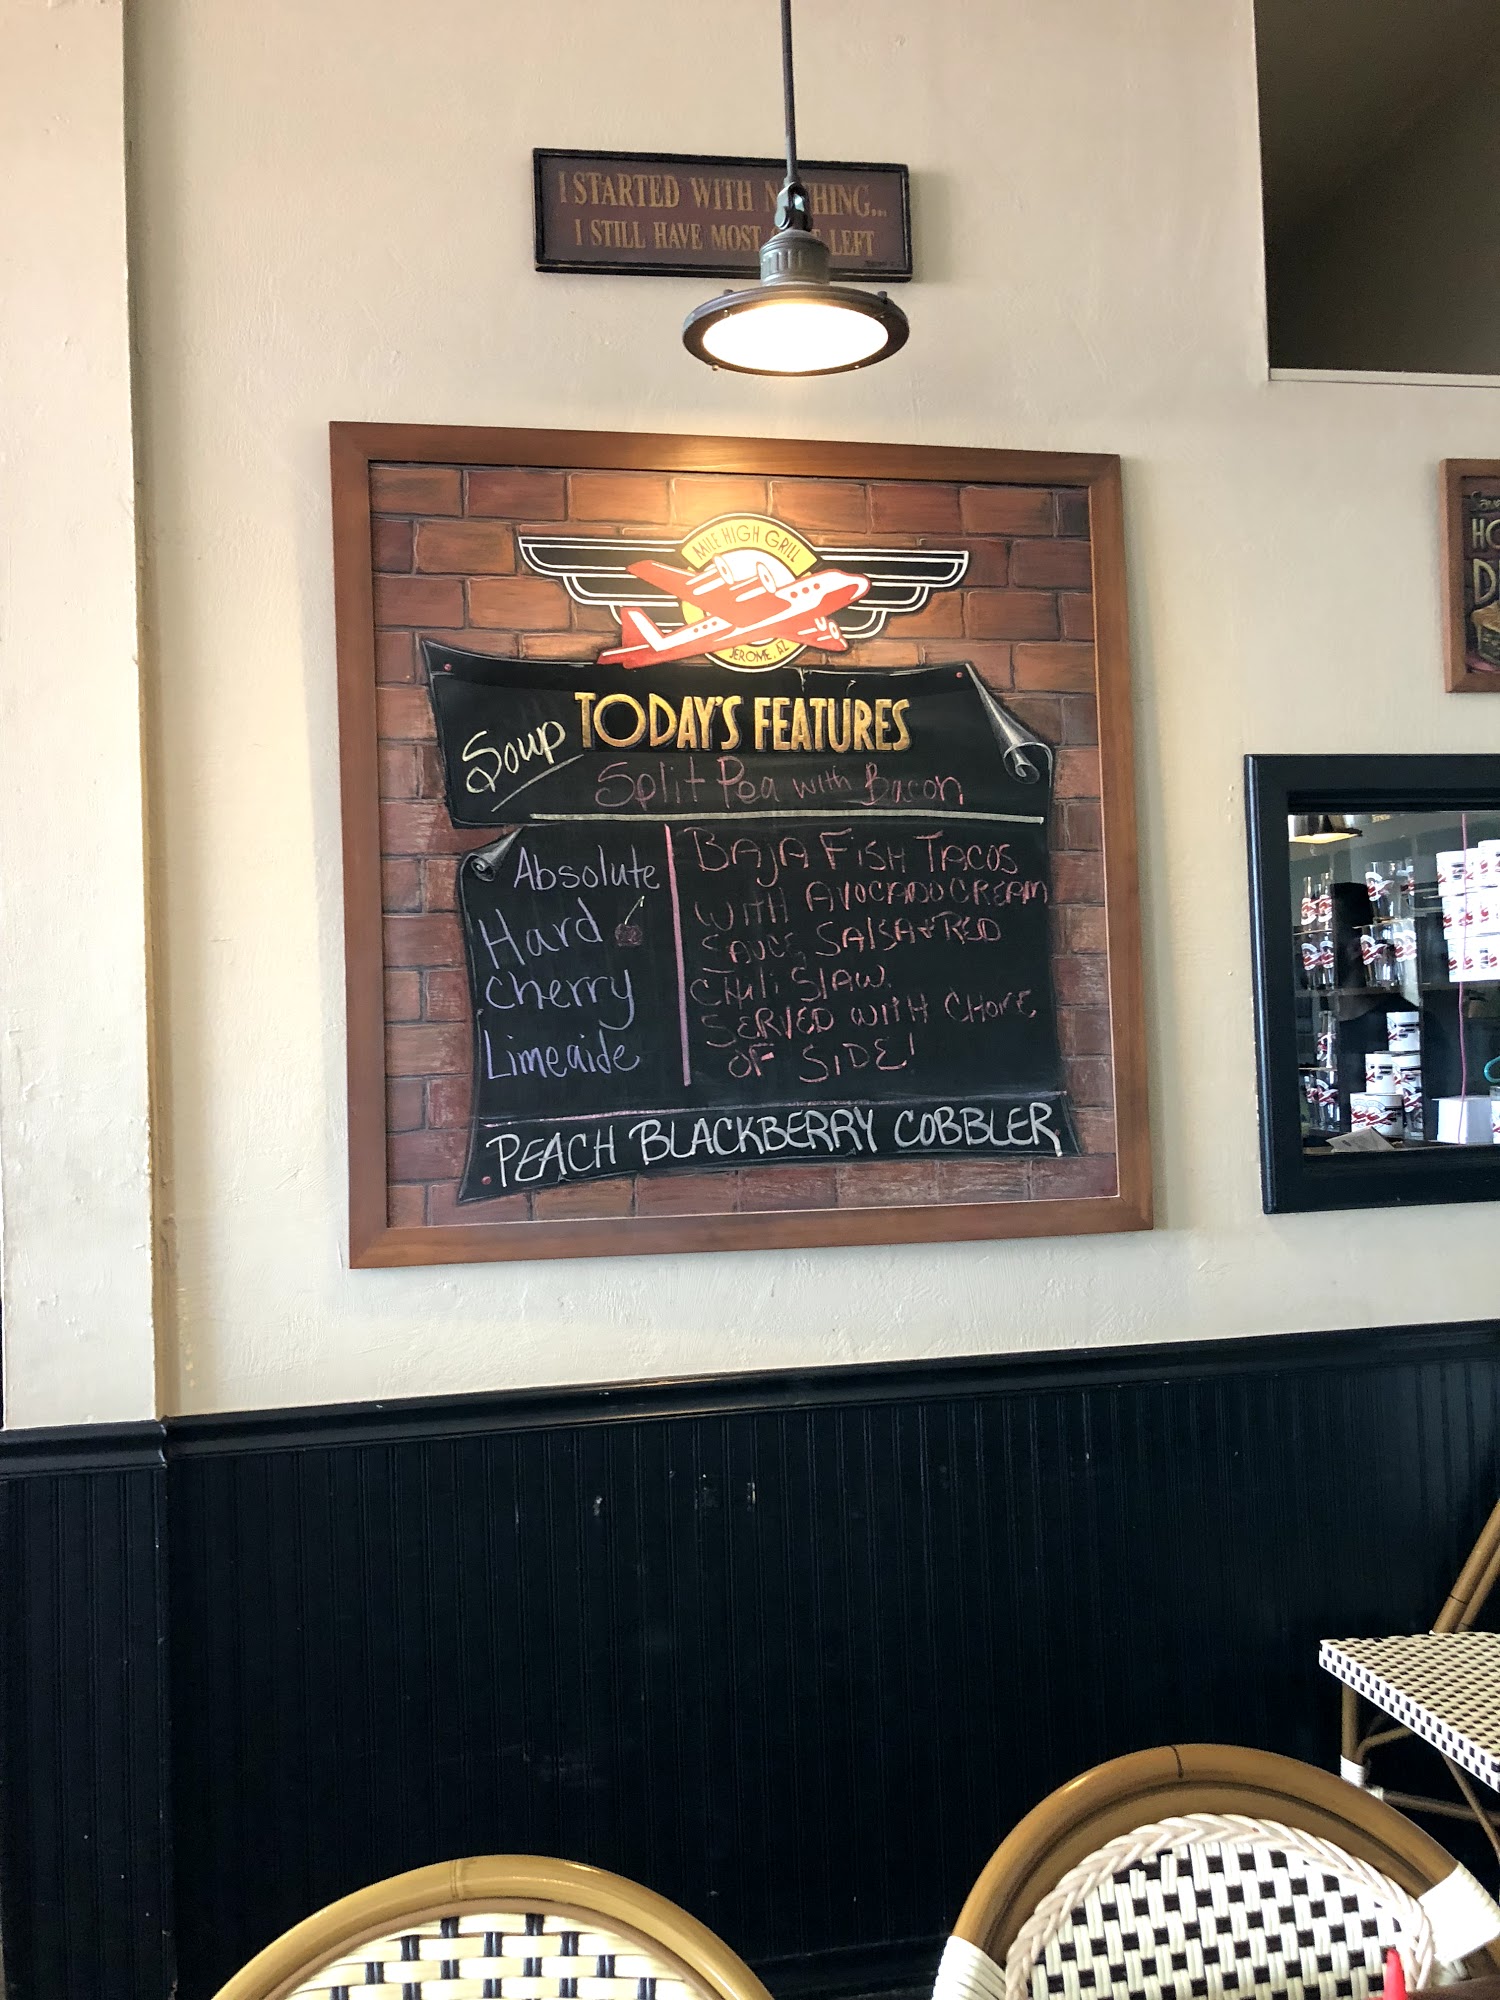 I STARTED WITH N HING...
I STILL HAVE MOST LEFT
MILE HIGH GRILL
JEROME, AZ
TODAY'S FEATURES
Soup
Split Pea with Bacon
Absolute
Hard
Cherry
Limeaide
BAJA FISH TACOS
WITH AVOCADO CREAM
SAUCE, SALSA & RED
CHILI SLAW.
SERVED WITH CHOICE
OF SIDE!
PEACH BLACKBERRY COBBLER
HO
D